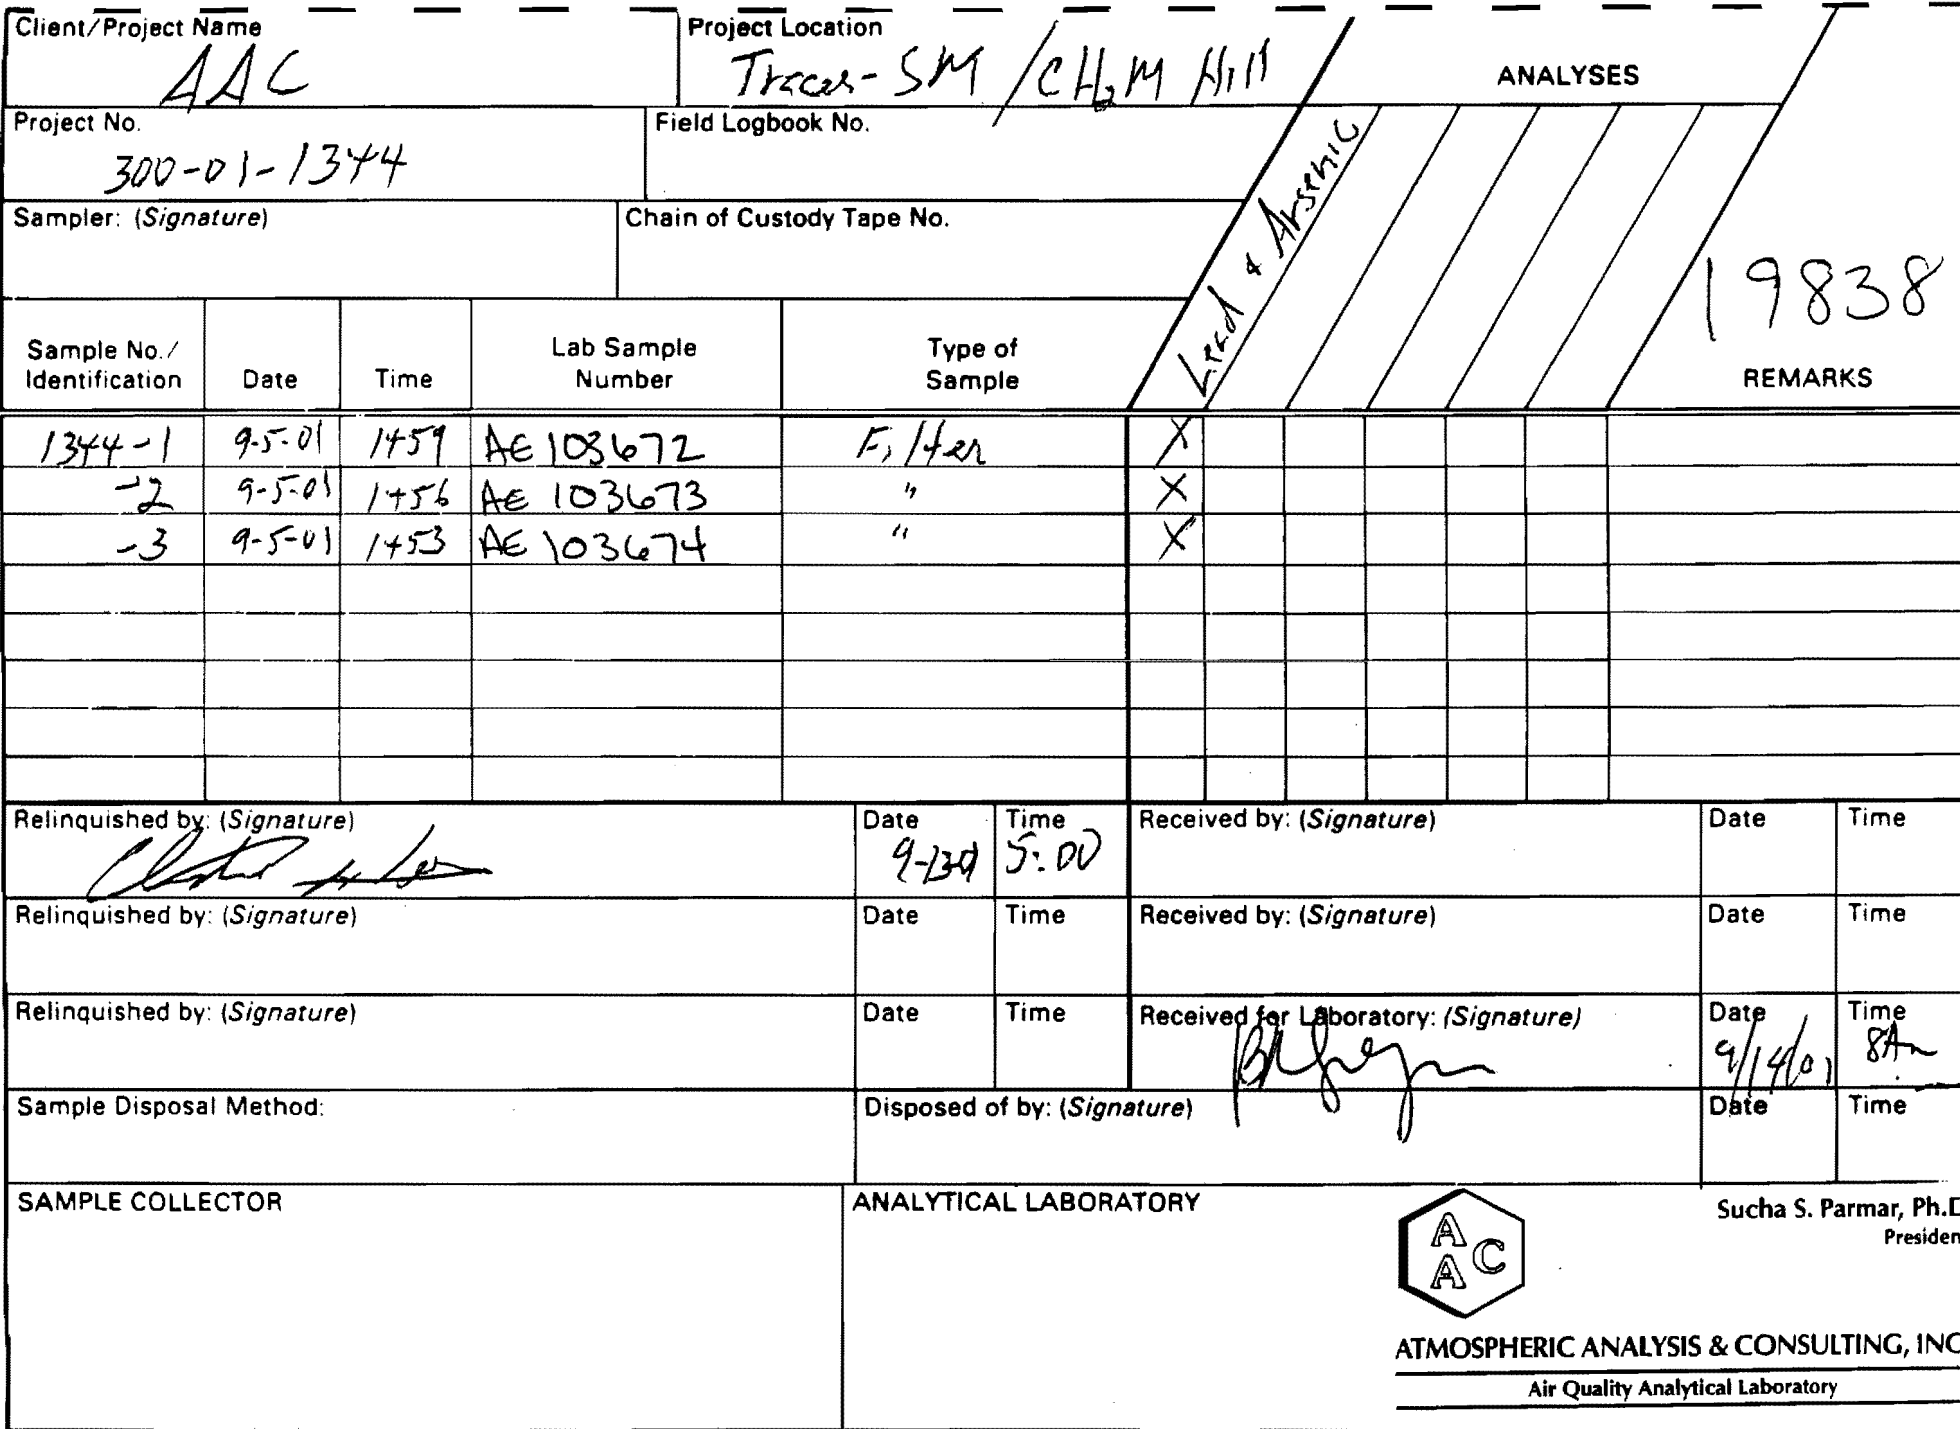 Client/Project Name
AAC
Project Location
Tracer-SM / CH2M Hill
ANALYSES
Project No.
300-01-1344
Field Logbook No.
Lead & Arsenic
Sampler: (Signature)
Chain of Custody Tape No.
19838
Sample No./ Identification
Date
Time
Lab Sample Number
Type of Sample
REMARKS
1344-1 9-5-01 1459 AE 103672 Filter X
-2 9-5-01 1456 AE 103673 " X
-3 9-5-01 1453 AE 103674 " X
Relinquished by: (Signature)
Date
9-1301
Time
5:00
Received by: (Signature)
Date
Time
Relinquished by: (Signature)
Date
Time
Received by: (Signature)
Date
Time
Relinquished by: (Signature)
Date
Time
Received for Laboratory: (Signature)
Date
9/14/01
Time
8Am
Sample Disposal Method:
Disposed of by: (Signature)
Date
Time
SAMPLE COLLECTOR
ANALYTICAL LABORATORY
AAC
Sucha S. Parmar, Ph.D
Presiden
ATMOSPHERIC ANALYSIS & CONSULTING, INC
Air Quality Analytical Laboratory